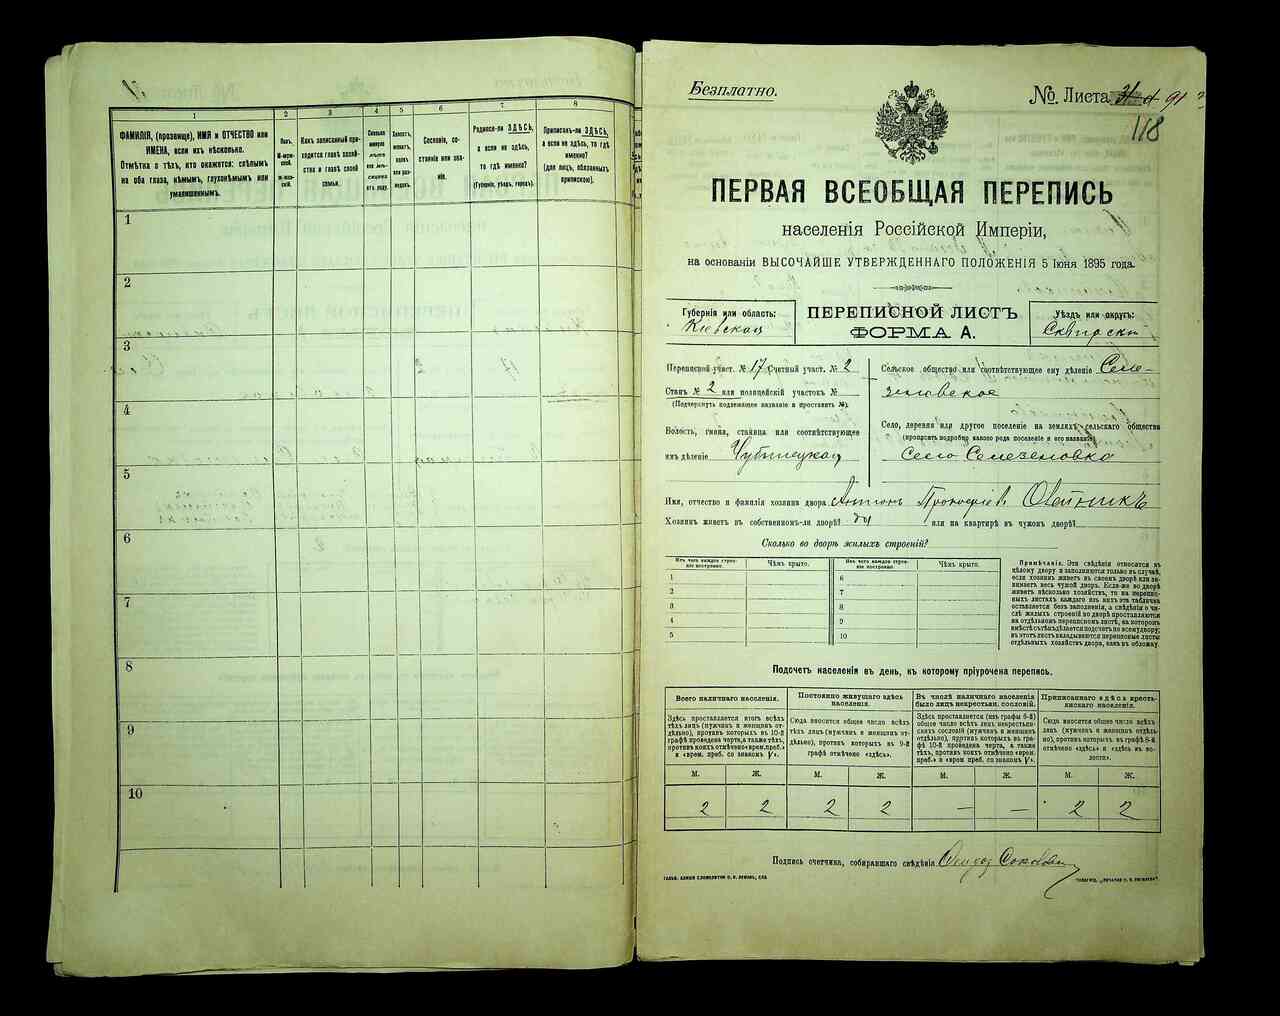 1
2
3
4
5
6
7
8
ФАМИЛІЯ, (прозвище), ИМЯ и ОТЧЕСТВО или
ИМЕНА, если ихъ нѣсколько.
Отмѣтка о тѣхъ, кто окажется: слѣпымъ
на оба глаза, нѣмымъ, глухонѣмымъ или
умалишеннымъ.
Полъ.
Какъ записанный при-
ходится главѣ хозяй-
ства и главѣ своей
семьи.
Сословіе, со-
стояніе или зва-
ніе.
Родился-ли ЗДѢСЬ,
а если не здѣсь,
то гдѣ именно?
(Губернія, уѣздъ, городъ).
Приписанъ-ли ЗДѢСЬ,
а если не здѣсь, то гдѣ
именно?
(для лицъ, обязанныхъ
припискою).
1
2
3
4
5
6
7
8
9
10
Безплатно.
№. Листа 91
118
ПЕРВАЯ ВСЕОБЩАЯ ПЕРЕПИСЬ
населенія Россійской Имперіи,
на основаніи ВЫСОЧАЙШЕ УТВЕРЖДЕННАГО ПОЛОЖЕНІЯ 5 Іюня 1895 года.
Губернія или область:
Кіевская
ПЕРЕПИСНОЙ ЛИСТЪ
ФОРМА А.
Уѣздъ или округъ:
Сквирскій
Переписной участ. № 17 Счетный участ. № 2
Станъ № 2 или полицейскій участокъ №
(Подчеркнуть подлежащее названіе и проставить №).
Волость, гмина, станица или соотвѣтствующее
имъ дѣленіе Чубинецкая
Сельское общество или соотвѣтствующее ему дѣленіе Селе-
зеновское
Село, деревня или другое поселеніе на земляхъ сельскаго общества
(прописать подробно какого рода поселеніе и его названіе)
Село Селезеновка
Имя, отчество и фамилія хозяина двора Антонъ Прокофіевъ Олейникъ
Хозяинъ живетъ въ собственномъ-ли дворѣ? да или на квартирѣ въ чужомъ дворѣ?
Сколько во дворѣ жилыхъ строеній?
Изъ чего каждое строе-
ніе построено.
Чѣмъ крыто.
Изъ чего каждое строе-
ніе построено.
Чѣмъ крыто.
1
2
3
4
5
6
7
8
9
10
Примѣчаніе. Эти свѣдѣнія относятся къ
цѣлому двору и заполняются только въ случаѣ,
если хозяинъ живетъ въ своемъ дворѣ или за-
нимаетъ весь чужой дворъ. Если-же во дворѣ
живетъ нѣсколько хозяйствъ, то на перепис-
ныхъ листахъ каждаго изъ нихъ эта табличка
оставляется безъ заполненія, а свѣдѣнія о чи-
слѣ жилыхъ строеній во дворѣ проставляются
на отдѣльномъ переписномъ листѣ, на которомъ
вмѣстѣ съ тѣмъ дѣлается подсчетъ по всему двору;
въ этотъ листъ вкладываются переписные листы
отдѣльныхъ хозяйствъ двора, какъ въ обложку.
Подсчетъ населенія въ день, къ которому пріурочена перепись.
Всего наличнаго населенія.
Здѣсь проставляется итогъ всѣхъ
тѣхъ лицъ (мужчинъ и женщинъ от-
дѣльно), противъ которыхъ въ 10-й
графѣ проведена черта, а также тѣхъ,
противъ коихъ отмѣчено «врем. преб.»
и «врем. преб. со знакомъ V».
Постоянно живущаго здѣсь
населенія.
Сюда вносится общее число всѣхъ
тѣхъ лицъ (мужчинъ и женщинъ от-
дѣльно), противъ которыхъ въ 9-й
графѣ отмѣчено «здѣсь».
Въ числѣ наличнаго населенія
было лицъ некрестьян. сословій.
Здѣсь проставляется (изъ графы 6-й)
общее число всѣхъ лицъ некрестьян-
скихъ сословій (мужчинъ и женщинъ
отдѣльно), противъ которыхъ въ гра-
фѣ 10-й проведена черта, а также
тѣхъ, противъ коихъ отмѣчено «врем.
преб.» и «врем. преб. со знакомъ V».
Приписаннаго здѣсь кресть-
янскаго населенія.
Сюда вносится общее число всѣхъ
лицъ (мужчинъ и женщинъ отдѣль-
но), противъ которыхъ въ графѣ 8-й
отмѣчено «здѣсь» и «здѣсь въ во-
лости».
М. Ж. М. Ж. М. Ж. М. Ж.
2 2 2 2 — — 2 2
Подпись счетчика, собиравшаго свѣдѣнія